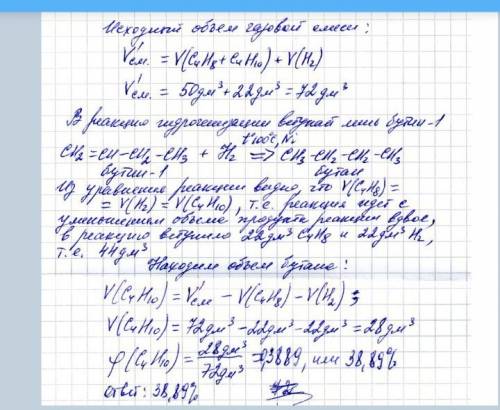 Исходный объем газовой смеси:
V'см. = V(C4H8 + C4H10) + V(H2)
V'см. = 50дм³ + 22дм³ = 72дм³
В реакцию гидрогенизации вступай лишь бутен-1
t°100°C, Ni
CH2=CH-CH2-CH3 + H2 => CH3-CH2-CH2-CH3
бутен-1 бутан
Из уравнения реакции видно, что V(C4H8) =
= V(H2) = V(C4H10), т.е. реакция идет с
уменьшением объема продукта реакции вдвое,
в реакцию вступило 22дм³ C4H8 и 22дм³ H2,
т.е. 44дм³
Находим объем бутана:
V(C4H10) = V'см - V(C4H8) - V(H2) ;
V(C4H10) = 72дм³ - 22дм³ - 22дм³ = 28дм³
φ(C4H10) = 28дм³/72дм³ = 0,3889, или 38,89%
Ответ: 38,89%